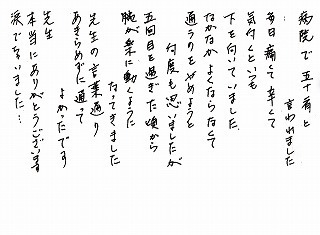 病院で五十肩と
言われました
毎日痛くて辛くて
気付くといつも
下を向いていました
なかなかよくならなくて
通うのをやめようと
何度も思いましたが
五回目を過ぎた頃から
腕が楽に動くように
なってきました
先生の言葉通り
あきらめずに通って
よかったです
先生
本当にありがとうございます
涙でちゃいました…